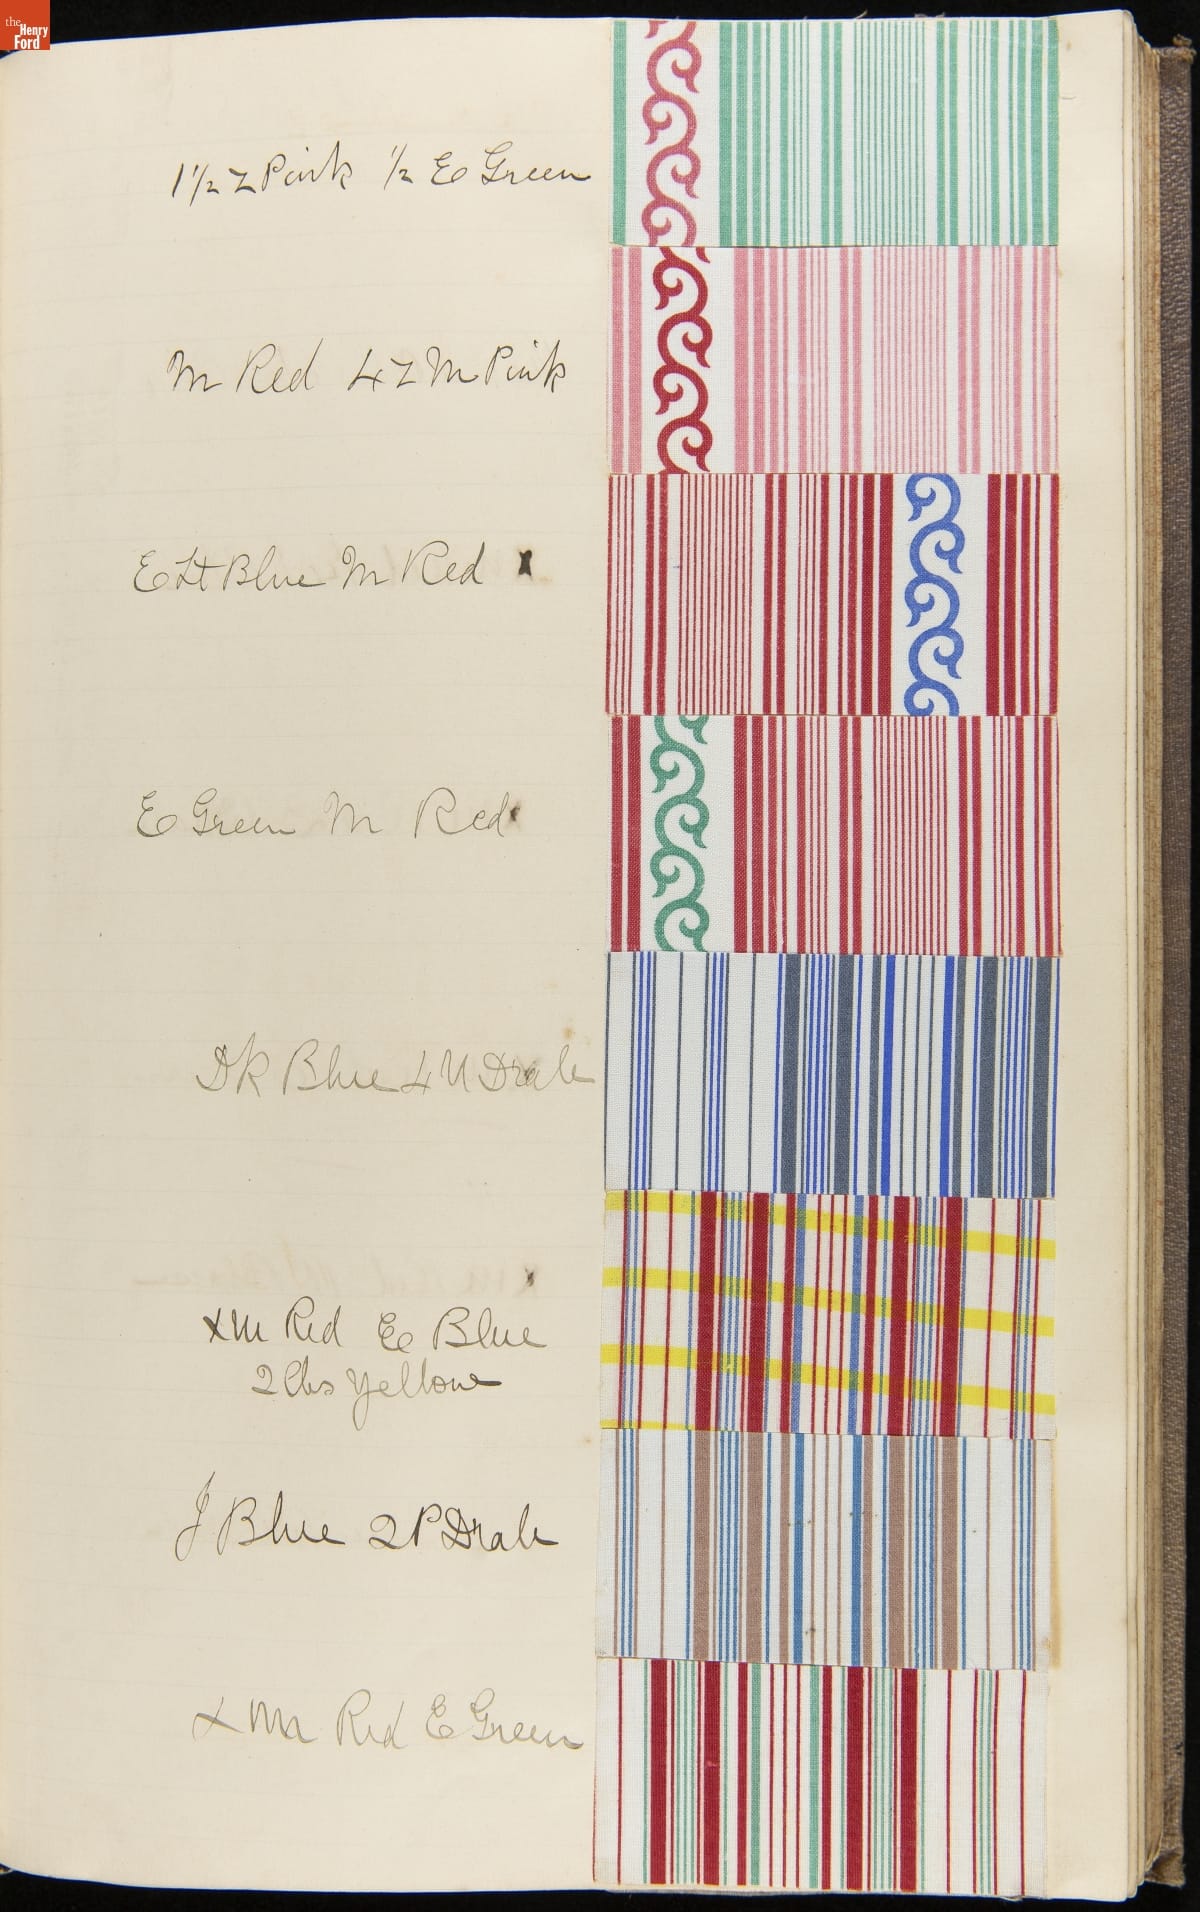 the
Henry
Ford
1 1/2 Z Pink 1/2 E Green
M Red 4 Z M Pink
E Lt Blue M Red x
E Green M Red
Dk Blue 4 U Drab
x M Red E Blue
2 Cks Yellow
J Blue 2 P Drab
x M Red E Green